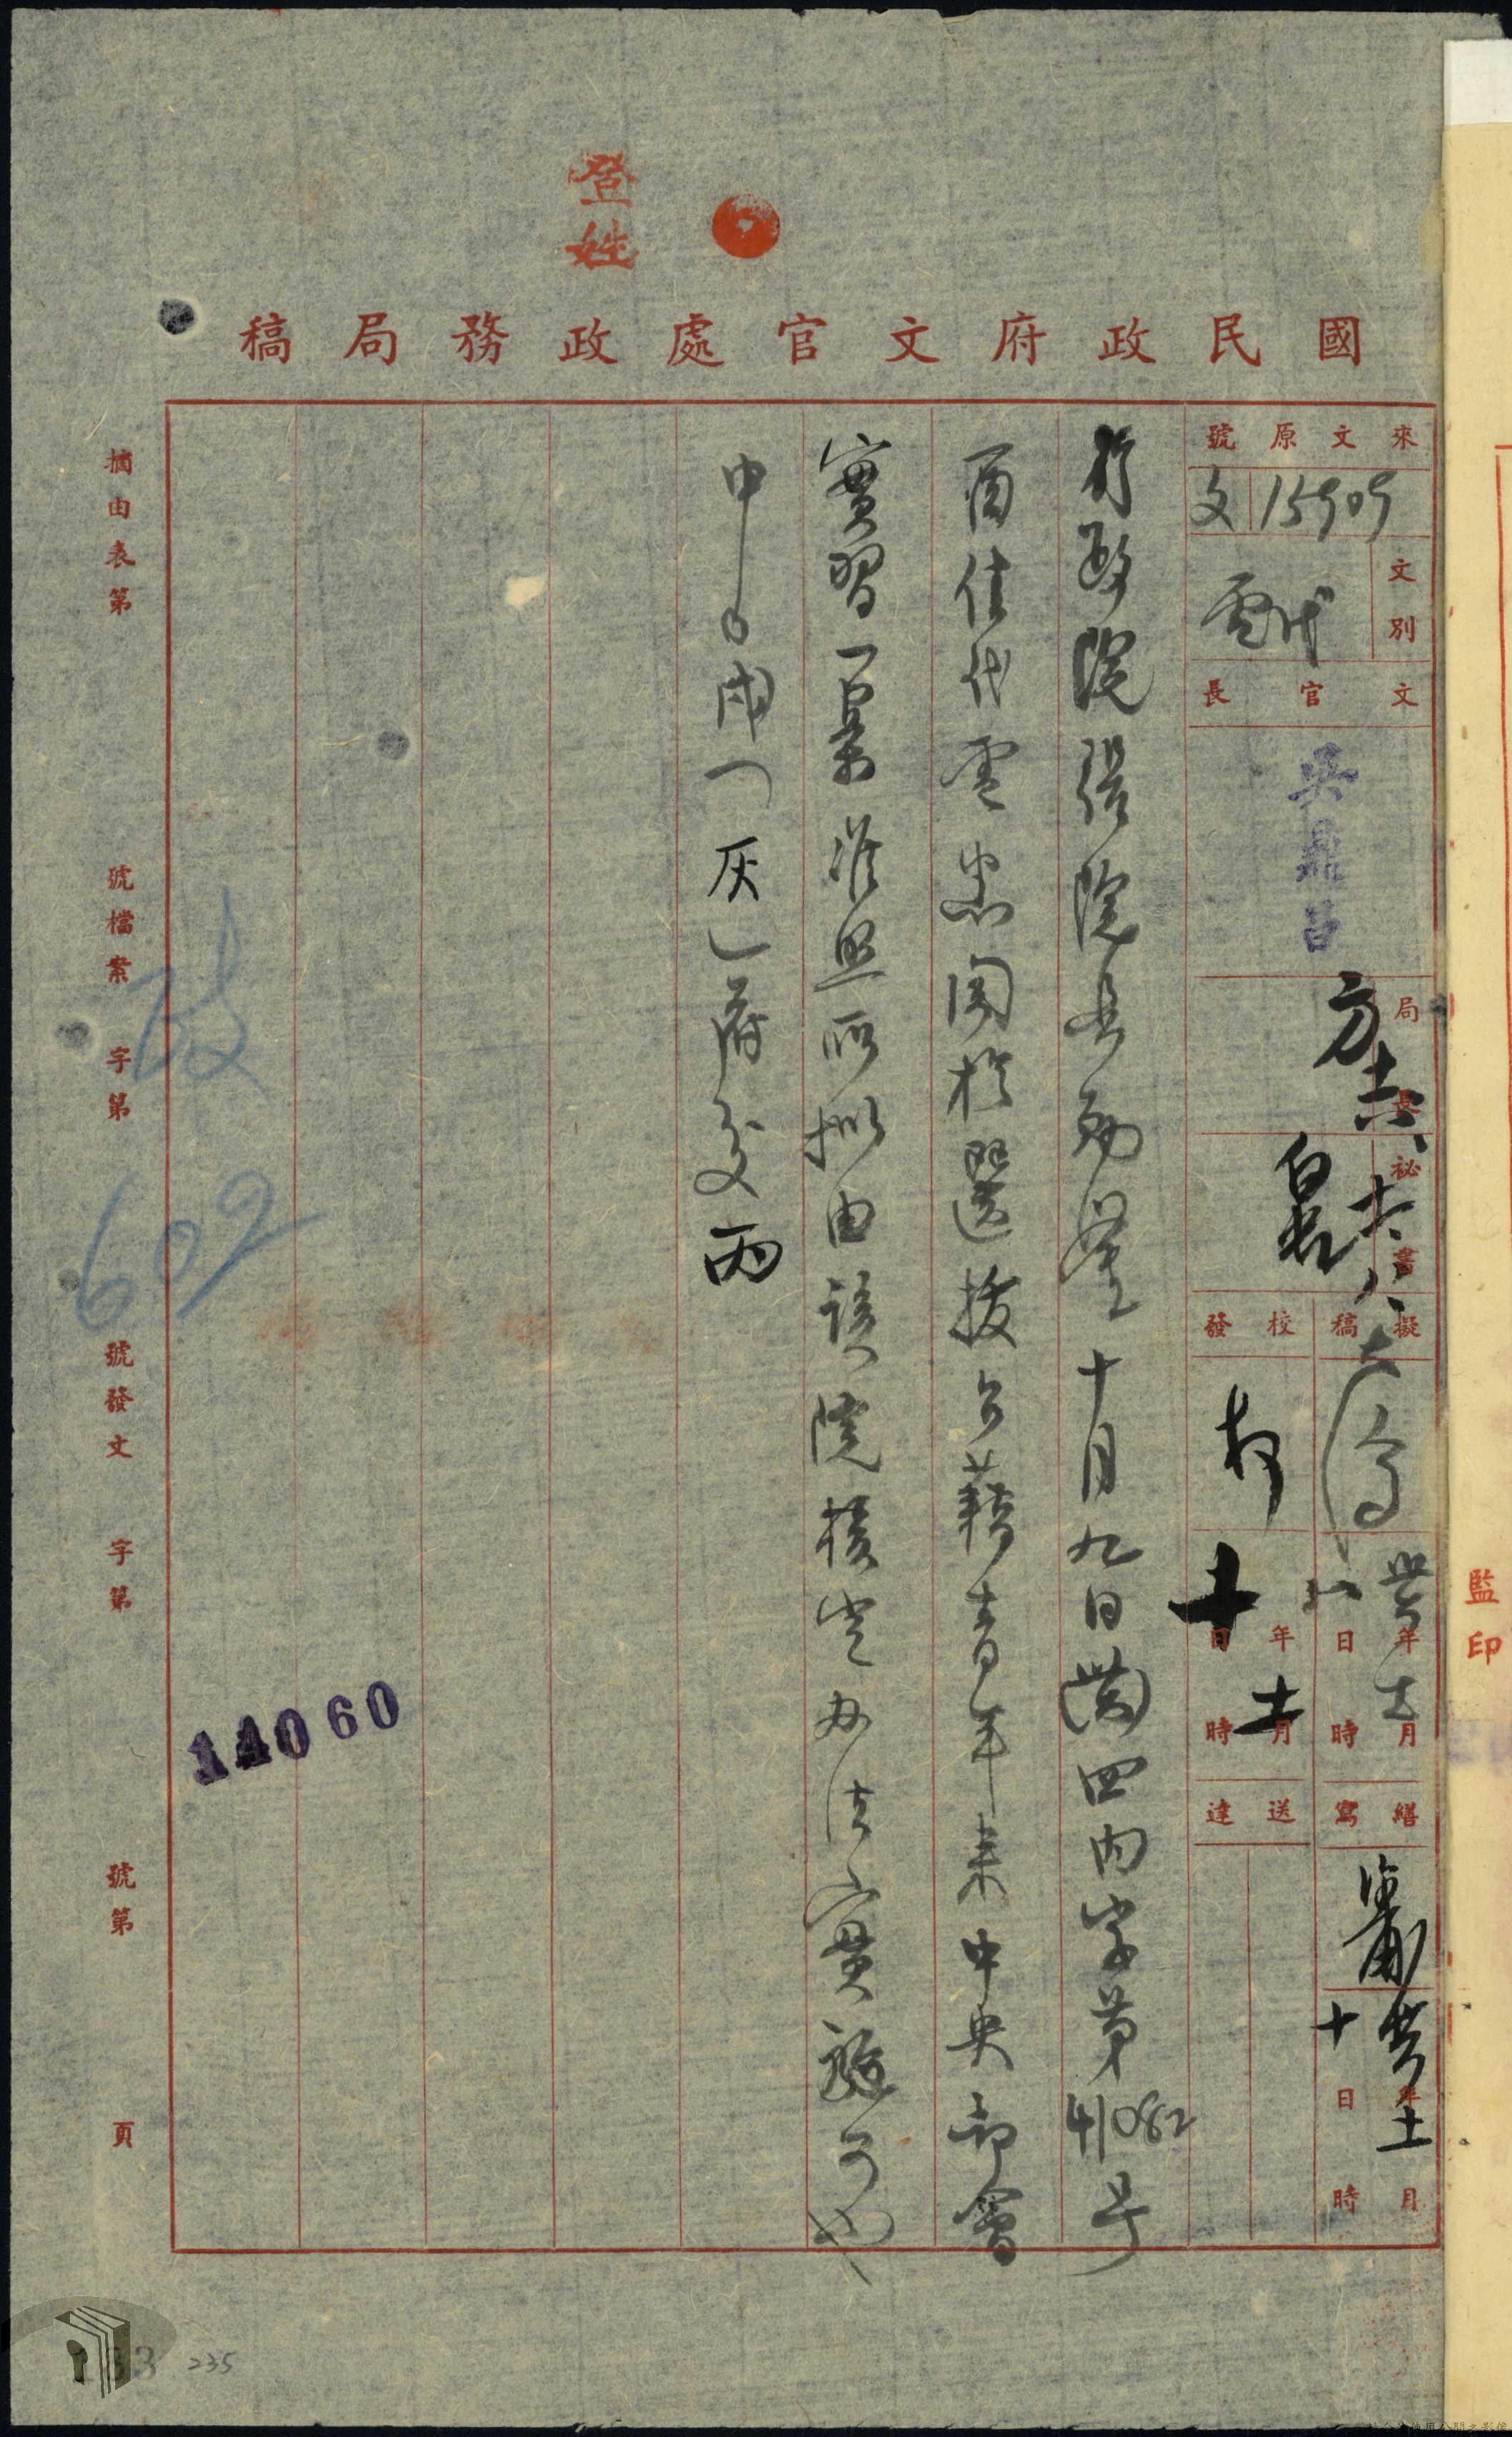 登
姓
國民政府文官處政務局稿
來文原號
文 15909
文別
代電
文官長
吳鼎昌
局長
方
秘書
擬稿
校發
年 月 日 時
年 月 日 時
十
十一
繕寫
送達
年 月 日 時
十
行政院張院長勛鑒十月九日(卅六)四內字第41082号
酉佳代電悉關於選拔台藉青年來中央部會
實習一案准照所擬由該院核定办法實施可也
中〇戌(灰)府交丙
摘由表第 號檔案 字第 號發文 字第 號第 頁
政
602
14060
監印
133
235